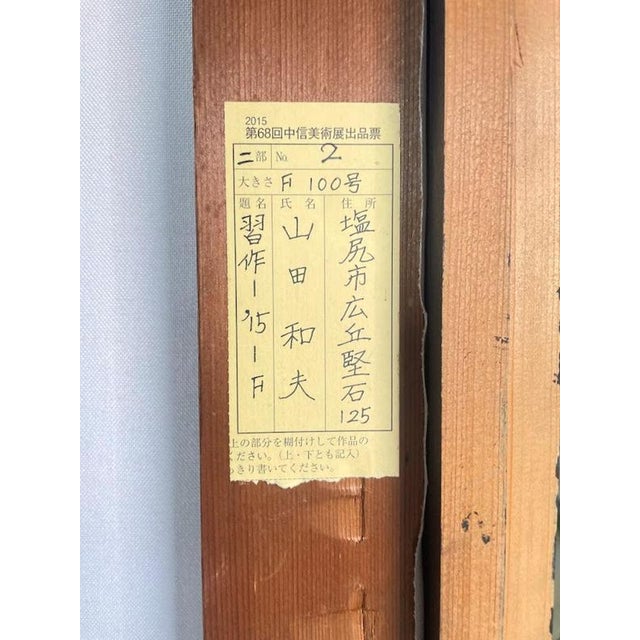 2015
第68回中信美術展出品票
二部 No. 2
大きさ F 100号
題名
習作-'15-F
氏名
山田和夫
住所
塩尻市広丘堅石125
上の部分を糊付けして作品の
ください。(上・下とも記入)
っきり書いてください。